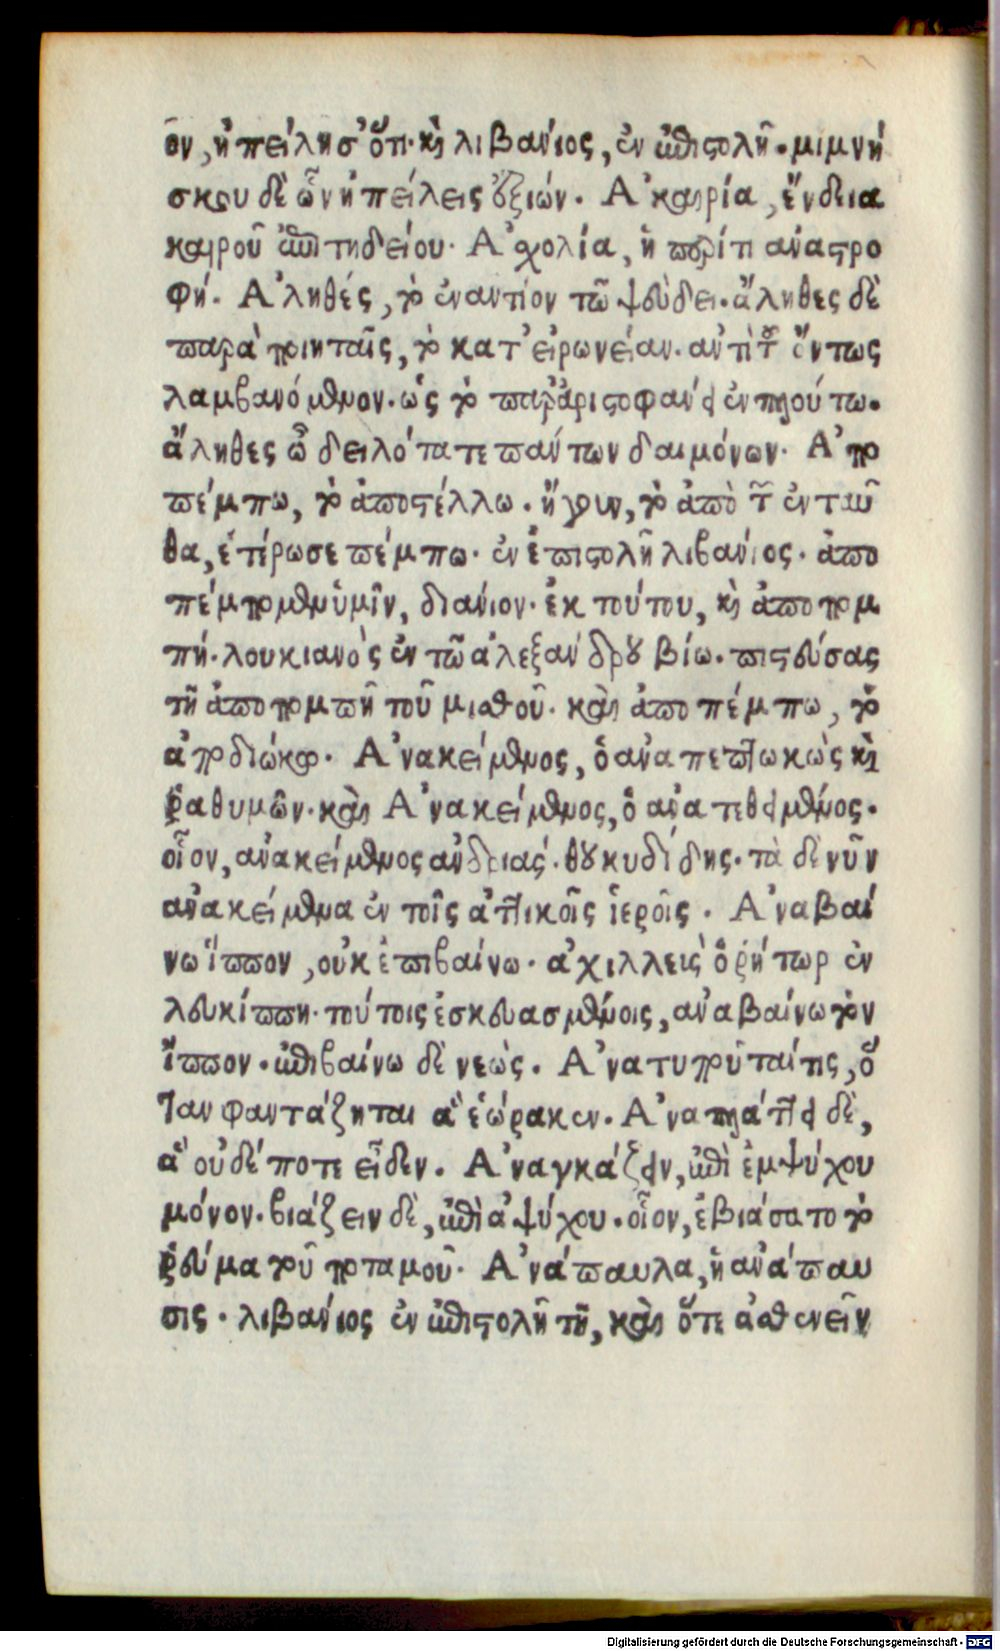 ον, ἠπείλησ' ὅτι. καὶ λιβανίος, ἐν ἐπιστολῆ. μιμνή
σκου δὲ ὧν ἠπείλεις ἀξιῶν. Ἀκαιρία, ἔνδεια
καιροῦ ἐπιτηδείου. Ἀσχολία, ἡ περίτι ἀναστρο
φή. Ἀληθές, τὸ ἐναντίον τῶ ψεύδει. ἄληθες δὲ
παρὰ ποιηταῖς, τὸ κατ' εἰρωνείαν. ἀντὶ τοῦ ὄντως
λαμβανόμενον. ὡς τὸ παρἀριστοφανει ἐν πλούτω.
ἄληθες ὦ δειλότατε πάντων δαιμόνων. Ἀπο
πέμπω, τὸ ἀποστέλλω. ἤγουν, τὸ ἀπὸ τῶν ἐνταῦ
θα, ἑτέρωσε πέμπω. ἐν ἐπιστολῆ λιβανίος. ἀπο
πέμπομεν ὑμῖν, διανίον. ἐκ τούτου, καὶ ἀποπομ
πή. λουκιανὸς ἐν τῶ ἀλεξανδρου βίω. πιστεύσας
τῆ ἀποπομπῆ τοῦ μισθοῦ. καὶ ἀποπέμπω, τὸ
ἀποδιώκω. Ἀνακείμενος, ὁ ἀναπεπτωκὼς καὶ
ῥαθυμῶν. καὶ Ἀνακείμενος, ὁ ἀνατεθειμένος.
οἷον, ἀνακείμενος ἀνδριάς. θουκυδίδης. τὰ δὲ νῦν
ἀνακείμενα ἐν τοῖς ἀττικοῖς ἱεροῖς. Ἀναβαί
νω ἵππον, οὐκ ἐπιβαίνω. ἀχιλλεὺς ὁ ῥήτωρ ἐν
λευκίππη. τούτοις ἐσκευασμένοις, ἀναβαίνω τὸν
ἵππον. ἐπιβαίνω δὲ νεώς. Ἀνατυποῦταί τις, ὅ
ταν φαντάζηται ἃ ἑώρακεν. Ἀναπλάττει δὲ,
ἃ οὐδέποτε εἶδεν. Ἀναγκάζειν, ἐπὶ ἐμψύχου
μόνον. βιάζειν δὲ, ἐπὶ ἀψύχου. οἷον, ἐβιάσατο τὸ
ῥεύμα τοῦ ποταμοῦ. Ἀνάπαυλα, ἡ ἀνάπαυ
σις. λιβανίος ἐν ἐπιστολῆ τῆ, καὶ ὅτε ἀσθενεῖν
Digitalisierung gefördert durch die Deutsche Forschungsgemeinschaft - DFG